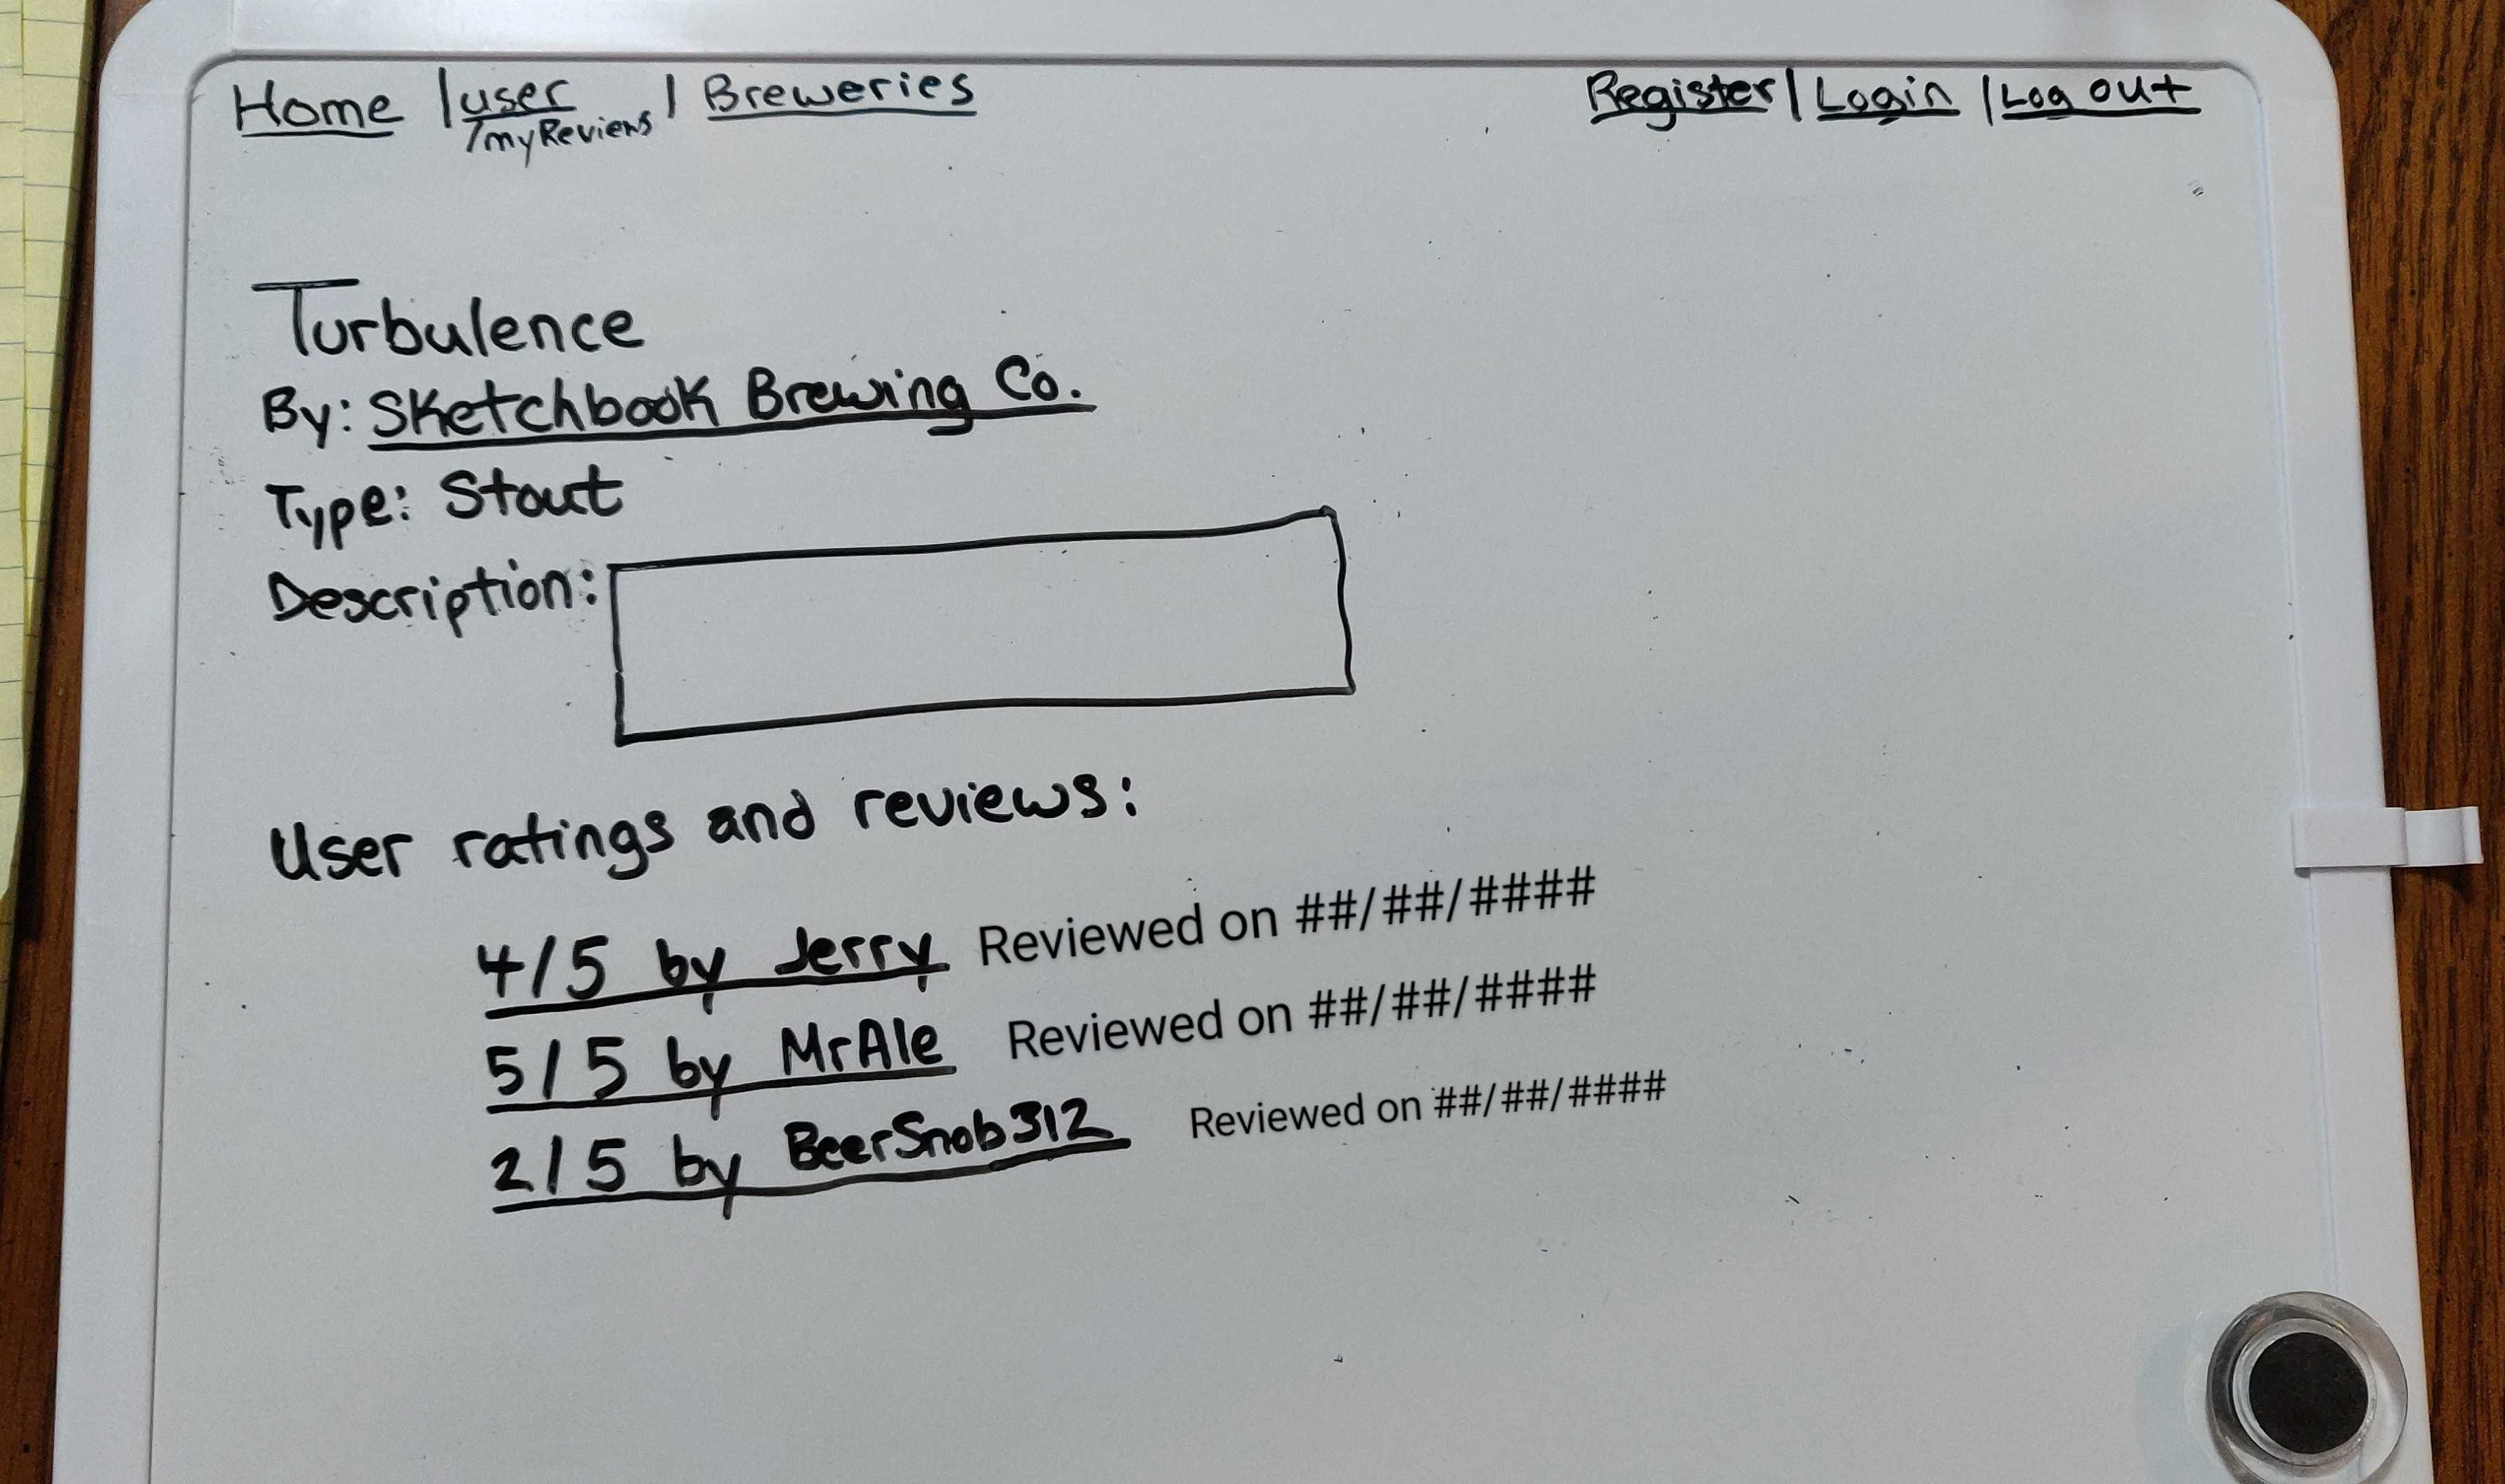 Home | user | Breweries Register | Login | Log out
/myReviews
Turbulence
By: Sketchbook Brewing Co.
Type: Stout
Description:
User ratings and reviews:
4/5 by Jerry Reviewed on ##/##/####
5/5 by MrAle Reviewed on ##/##/####
2/5 by BeerSnob312 Reviewed on ##/##/####